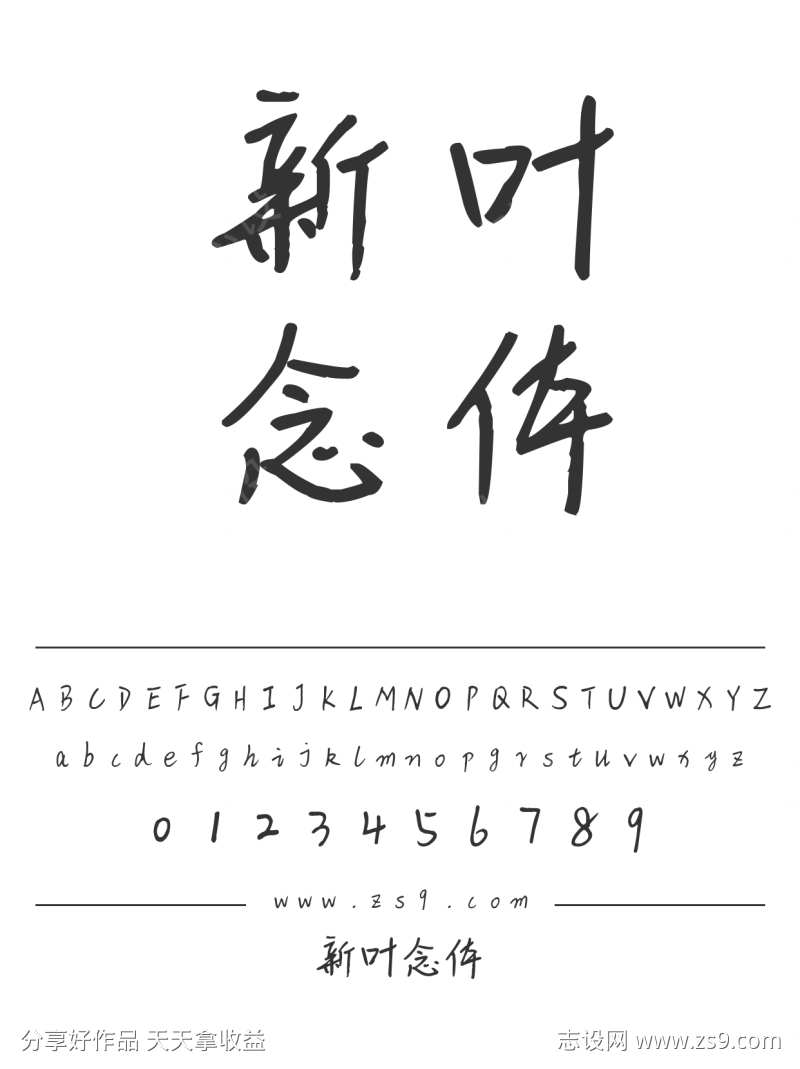 新叶
念体
A B C D E F G H I J K L M N O P Q R S T U V W X Y Z
a b c d e f g h i j k l m n o p q r s t u v w x y z
0 1 2 3 4 5 6 7 8 9
www.zs9.com
新叶念体
分享好作品 天天拿收益
志设网 www.zs9.com